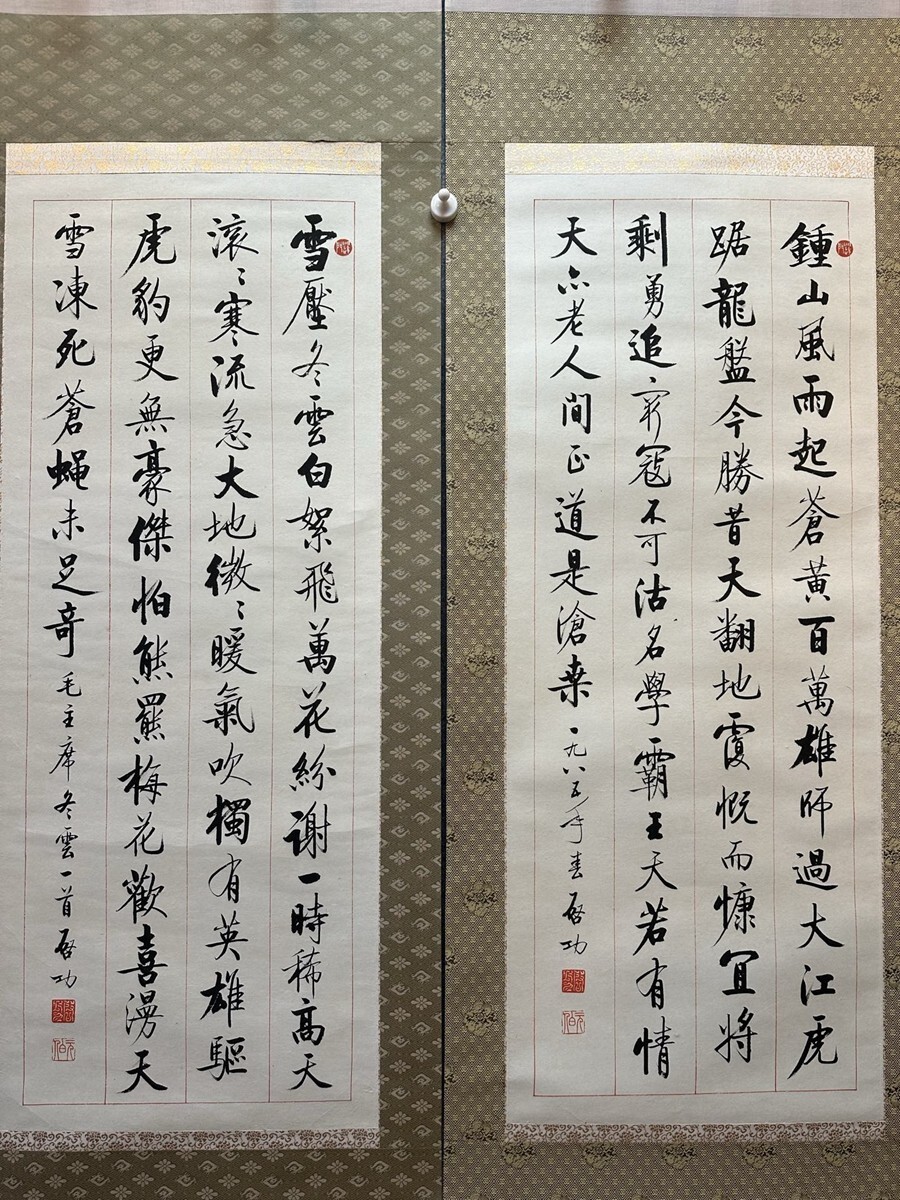 鍾山風雨起蒼黃百萬雄師過大江虎
踞龍盤今勝昔天翻地覆慨而慷宜將
剩勇追窮寇不可沽名學霸王天若有情
天亦老人間正道是滄桑 一九八五年春 啓功
雪壓冬雲白絮飛萬花紛謝一時稀高天
滾〻寒流急大地微〻暖氣吹獨有英雄驅
虎豹更無豪傑怕熊羆梅花歡喜漫天
雪凍死蒼蠅未足奇 毛主席冬雲一首 啓功